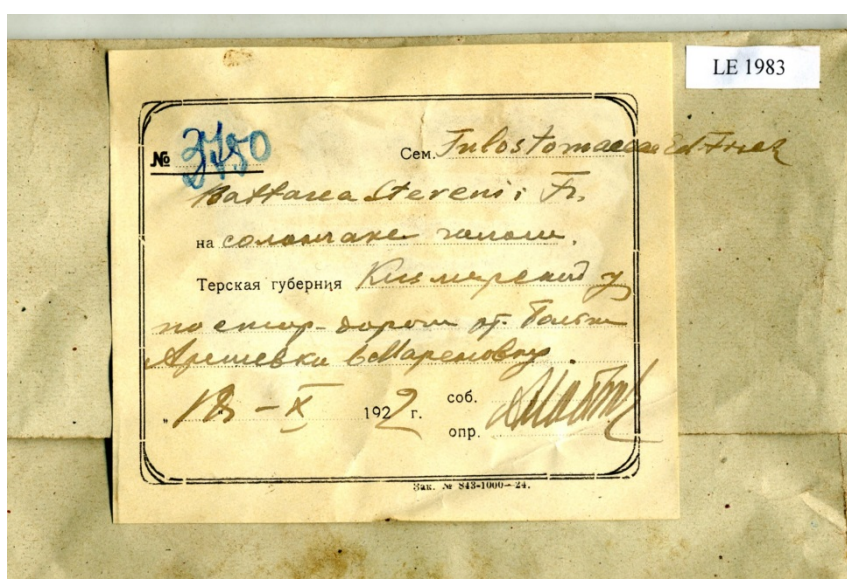 LE 1983
№ 3750 Сем. Tulostomaceae Ed. Fisch
Battarea Steveni Fr.
на солончаке
Терская губерния Кизлярский у
по стар. дороге от
Арешевки в Мареновку.
„ 18 – X 1922 г. соб.
опр.
Зак. № 843-1000– 24.